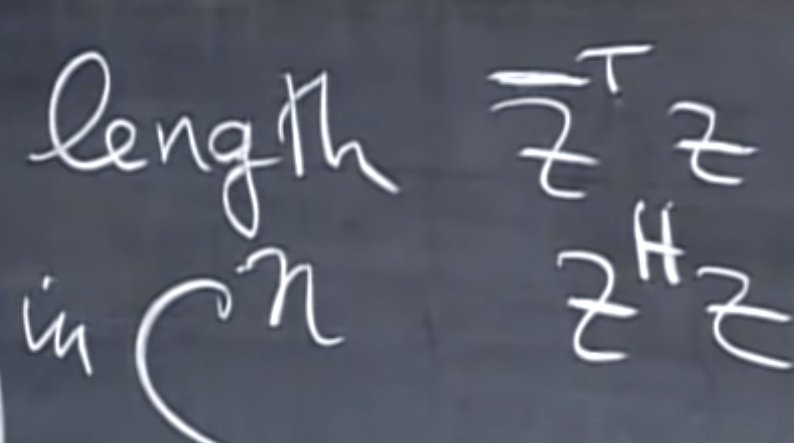 length z̄ᵀ z
in Cⁿ zᴴ z